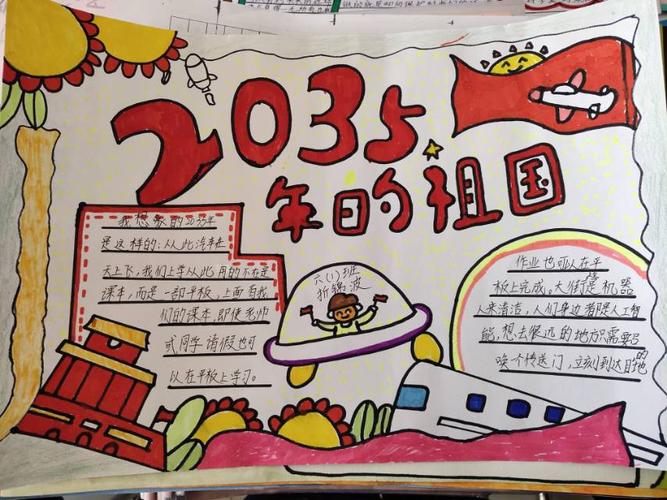 2035
年的祖国
我想象的2035年
是这样的:从此汽车在
天上飞,我们上学从此用的不在是
课本,而是一部平板,上面有我
们的课本,即使老师
或同学请假也可
以在平板上学习。
六(1)班
折锦波
作业也可以在平
板上完成,大街是机器
人来清洁,人们身边有人工智
能,想去很远的地方只需要
唤个传送门,立刻到达目的地